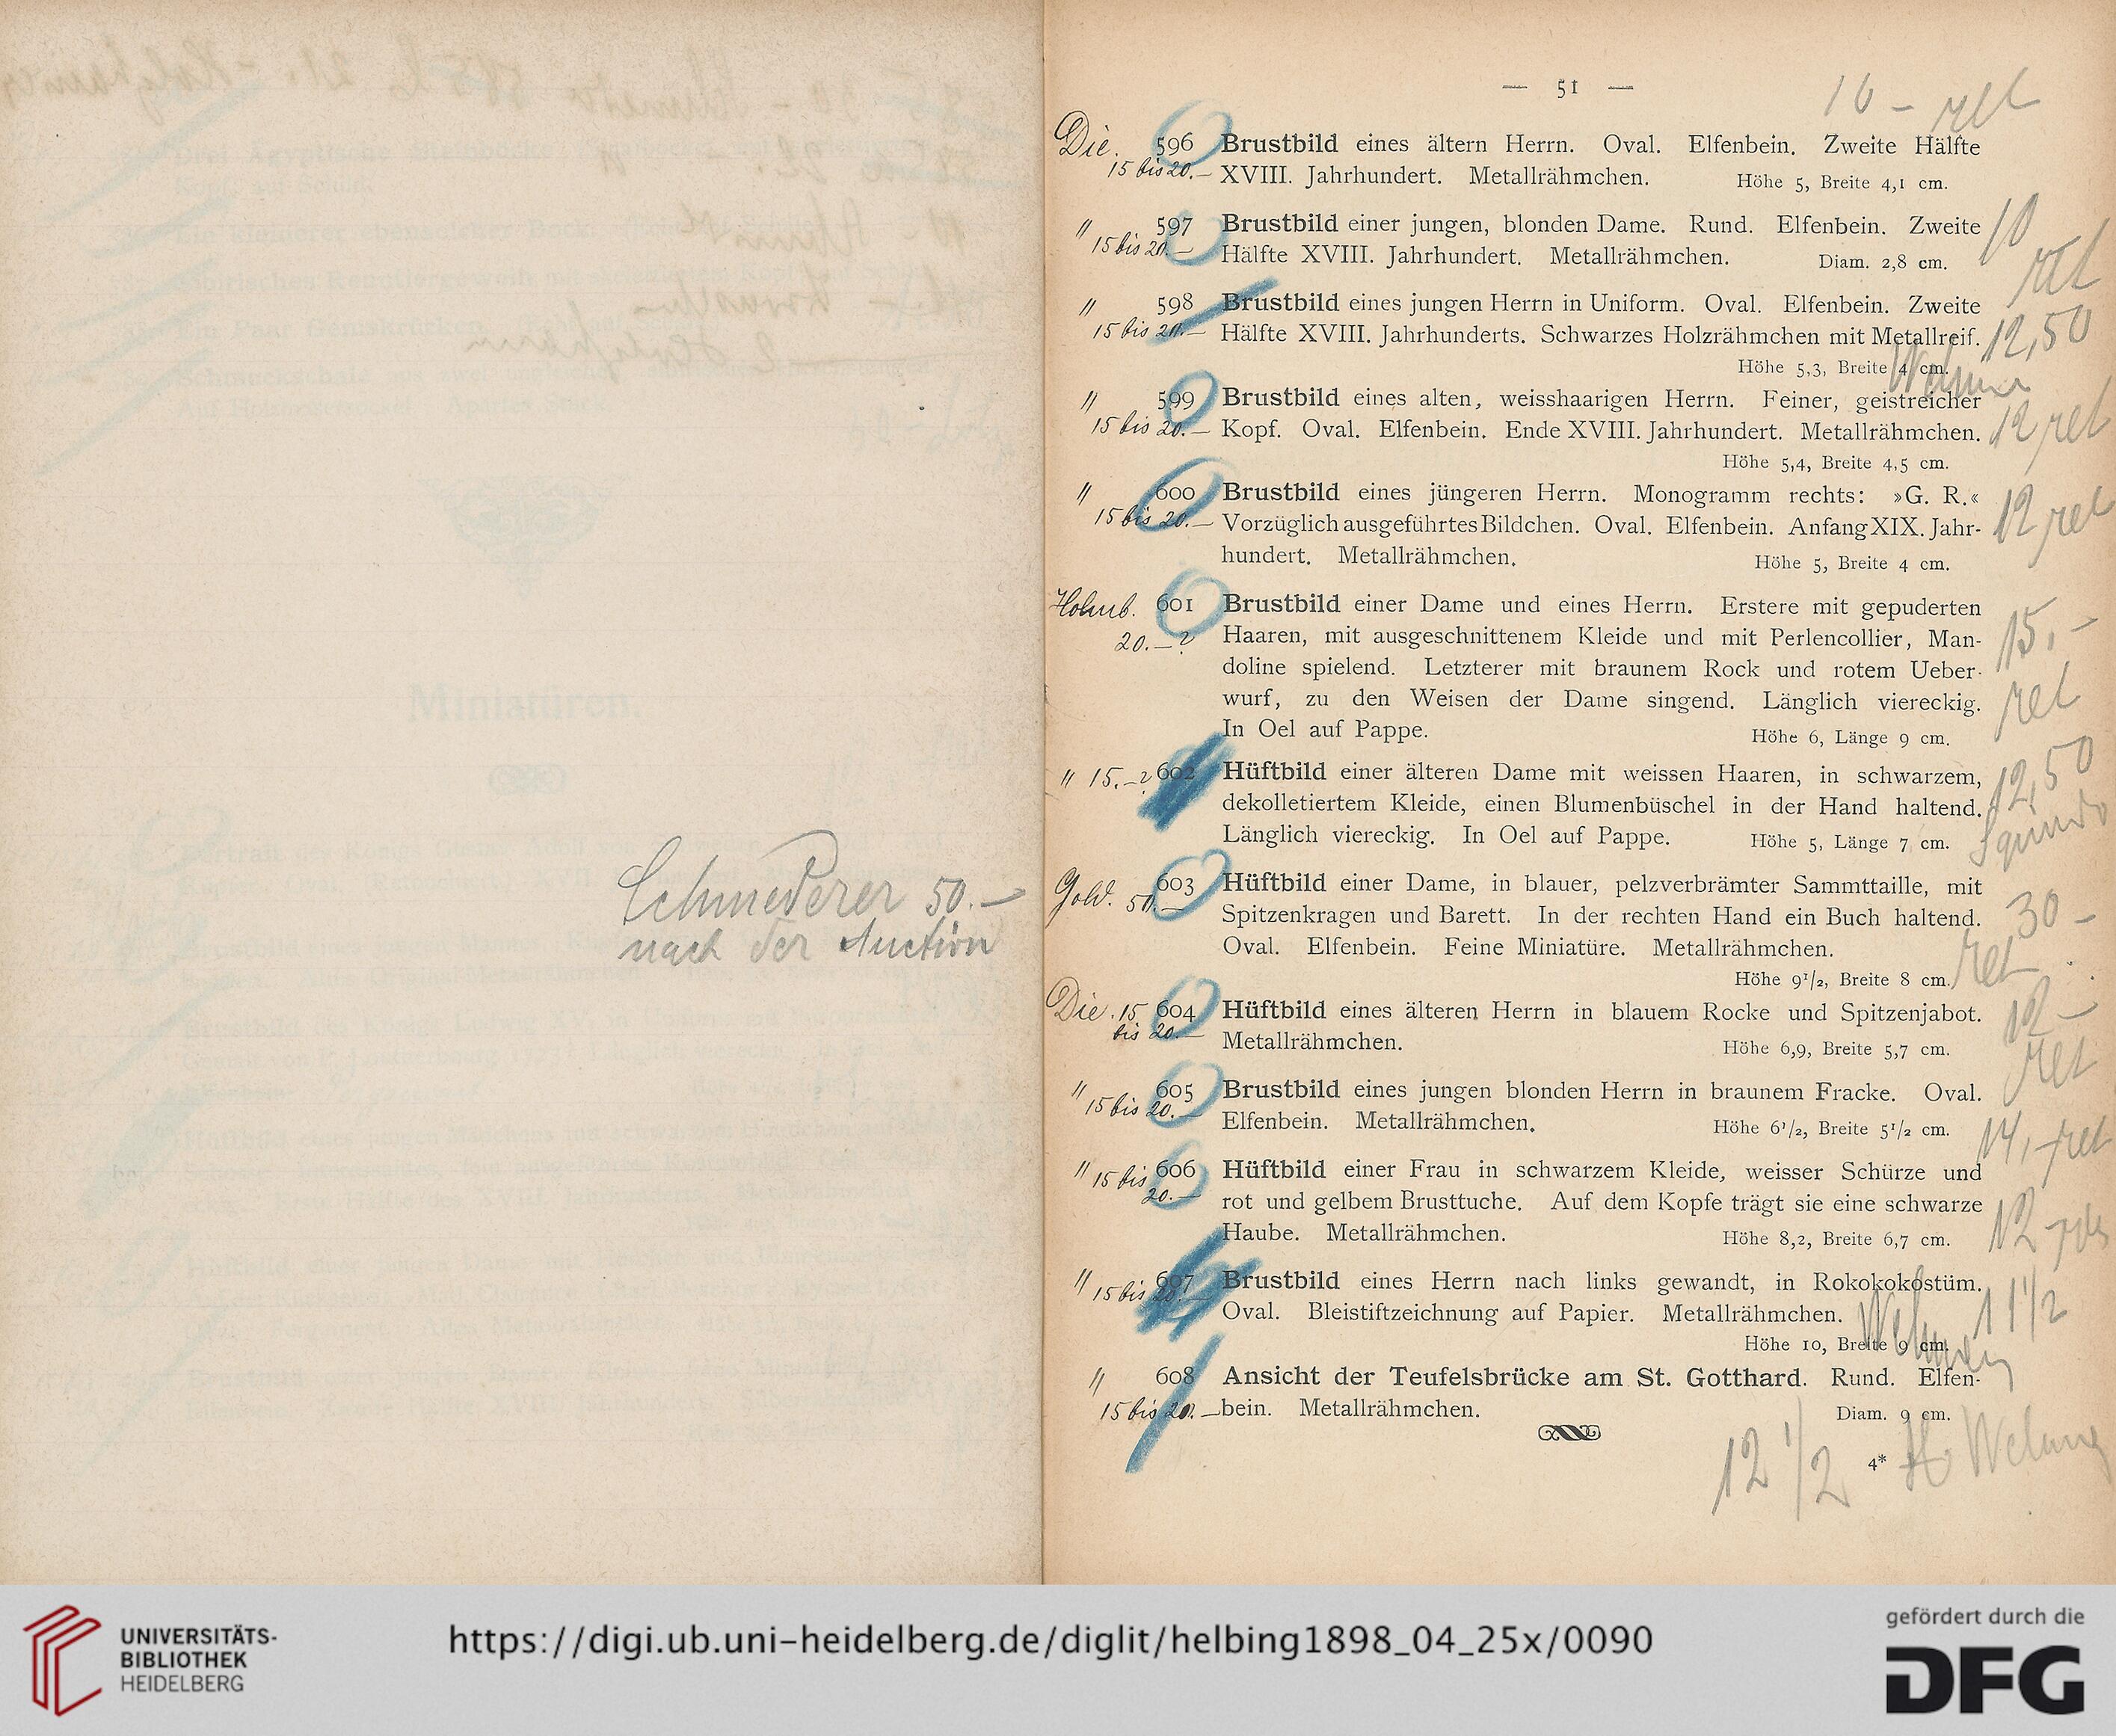 Schmederer 50.—
nach der Auction
— 51 —
16 - ret
Die. 596 Brustbild eines ältern Herrn. Oval. Elfenbein. Zweite Hälfte
15 bis 20.— XVIII. Jahrhundert. Metallrähmchen. Höhe 5, Breite 4,1 cm.
" 597 Brustbild einer jungen, blonden Dame. Rund. Elfenbein. Zweite 10
15 bis 20.— Hälfte XVIII. Jahrhundert. Metallrähmchen. Diam. 2,8 cm. ret
" 598 Brustbild eines jungen Herrn in Uniform. Oval. Elfenbein. Zweite
15 bis 20.— Hälfte XVIII. Jahrhunderts. Schwarzes Holzrähmchen mit Metallreif. 12,50
Höhe 5,3, Breite 4 cm.
" 599 Brustbild eines alten, weisshaarigen Herrn. Feiner, geistreicher
15 bis 20.— Kopf. Oval. Elfenbein. Ende XVIII. Jahrhundert. Metallrähmchen. 12 ret
Höhe 5,4, Breite 4,5 cm.
" 600 Brustbild eines jüngeren Herrn. Monogramm rechts: »G. R.«
15 bis 20.— Vorzüglich ausgeführtes Bildchen. Oval. Elfenbein. Anfang XIX. Jahr- 12 ret
hundert. Metallrähmchen. Höhe 5, Breite 4 cm.
Holmb. 601 Brustbild einer Dame und eines Herrn. Erstere mit gepuderten
20.—? Haaren, mit ausgeschnittenem Kleide und mit Perlencollier, Man- 15,-
doline spielend. Letzterer mit braunem Rock und rotem Ueber-
wurf, zu den Weisen der Dame singend. Länglich viereckig. ret
In Oel auf Pappe. Höhe 6, Länge 9 cm.
" 15.—? 602 Hüftbild einer älteren Dame mit weissen Haaren, in schwarzem, 12,50
dekolletiertem Kleide, einen Blumenbüschel in der Hand haltend.
Länglich viereckig. In Oel auf Pappe. Höhe 5, Länge 7 cm.
Gold. 50.— 603 Hüftbild einer Dame, in blauer, pelzverbrämter Sammttaille, mit
Spitzenkragen und Barett. In der rechten Hand ein Buch haltend. 30 -
Oval. Elfenbein. Feine Miniatüre. Metallrähmchen. ret
Höhe 9¹/₂, Breite 8 cm.
Die. 15 604 Hüftbild eines älteren Herrn in blauem Rocke und Spitzenjabot. 12 -
bis 20.— Metallrähmchen. Höhe 6,9, Breite 5,7 cm. ret
" 605 Brustbild eines jungen blonden Herrn in braunem Fracke. Oval.
15 bis 20.— Elfenbein. Metallrähmchen. Höhe 6¹/₂, Breite 5¹/₂ cm. 14,- ret
" 15 bis 606 Hüftbild einer Frau in schwarzem Kleide, weisser Schürze und
20.— rot und gelbem Brusttuche. Auf dem Kopfe trägt sie eine schwarze
Haube. Metallrähmchen. Höhe 8,2, Breite 6,7 cm. 12 - ret
" 607 Brustbild eines Herrn nach links gewandt, in Rokokokostüm.
15 bis 20.— Oval. Bleistiftzeichnung auf Papier. Metallrähmchen. 11 1/2
Höhe 10, Breite 9 cm.
" 608 Ansicht der Teufelsbrücke am St. Gotthard. Rund. Elfen-
15 bis 20.— bein. Metallrähmchen. Diam. 9 cm.
12 1/2
4*
UNIVERSITÄTS-
BIBLIOTHEK
HEIDELBERG
https://digi.ub.uni-heidelberg.de/diglit/helbing1898_04_25x/0090
gefördert durch die
DFG